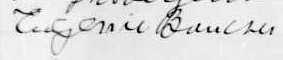 Eugenie Boucher